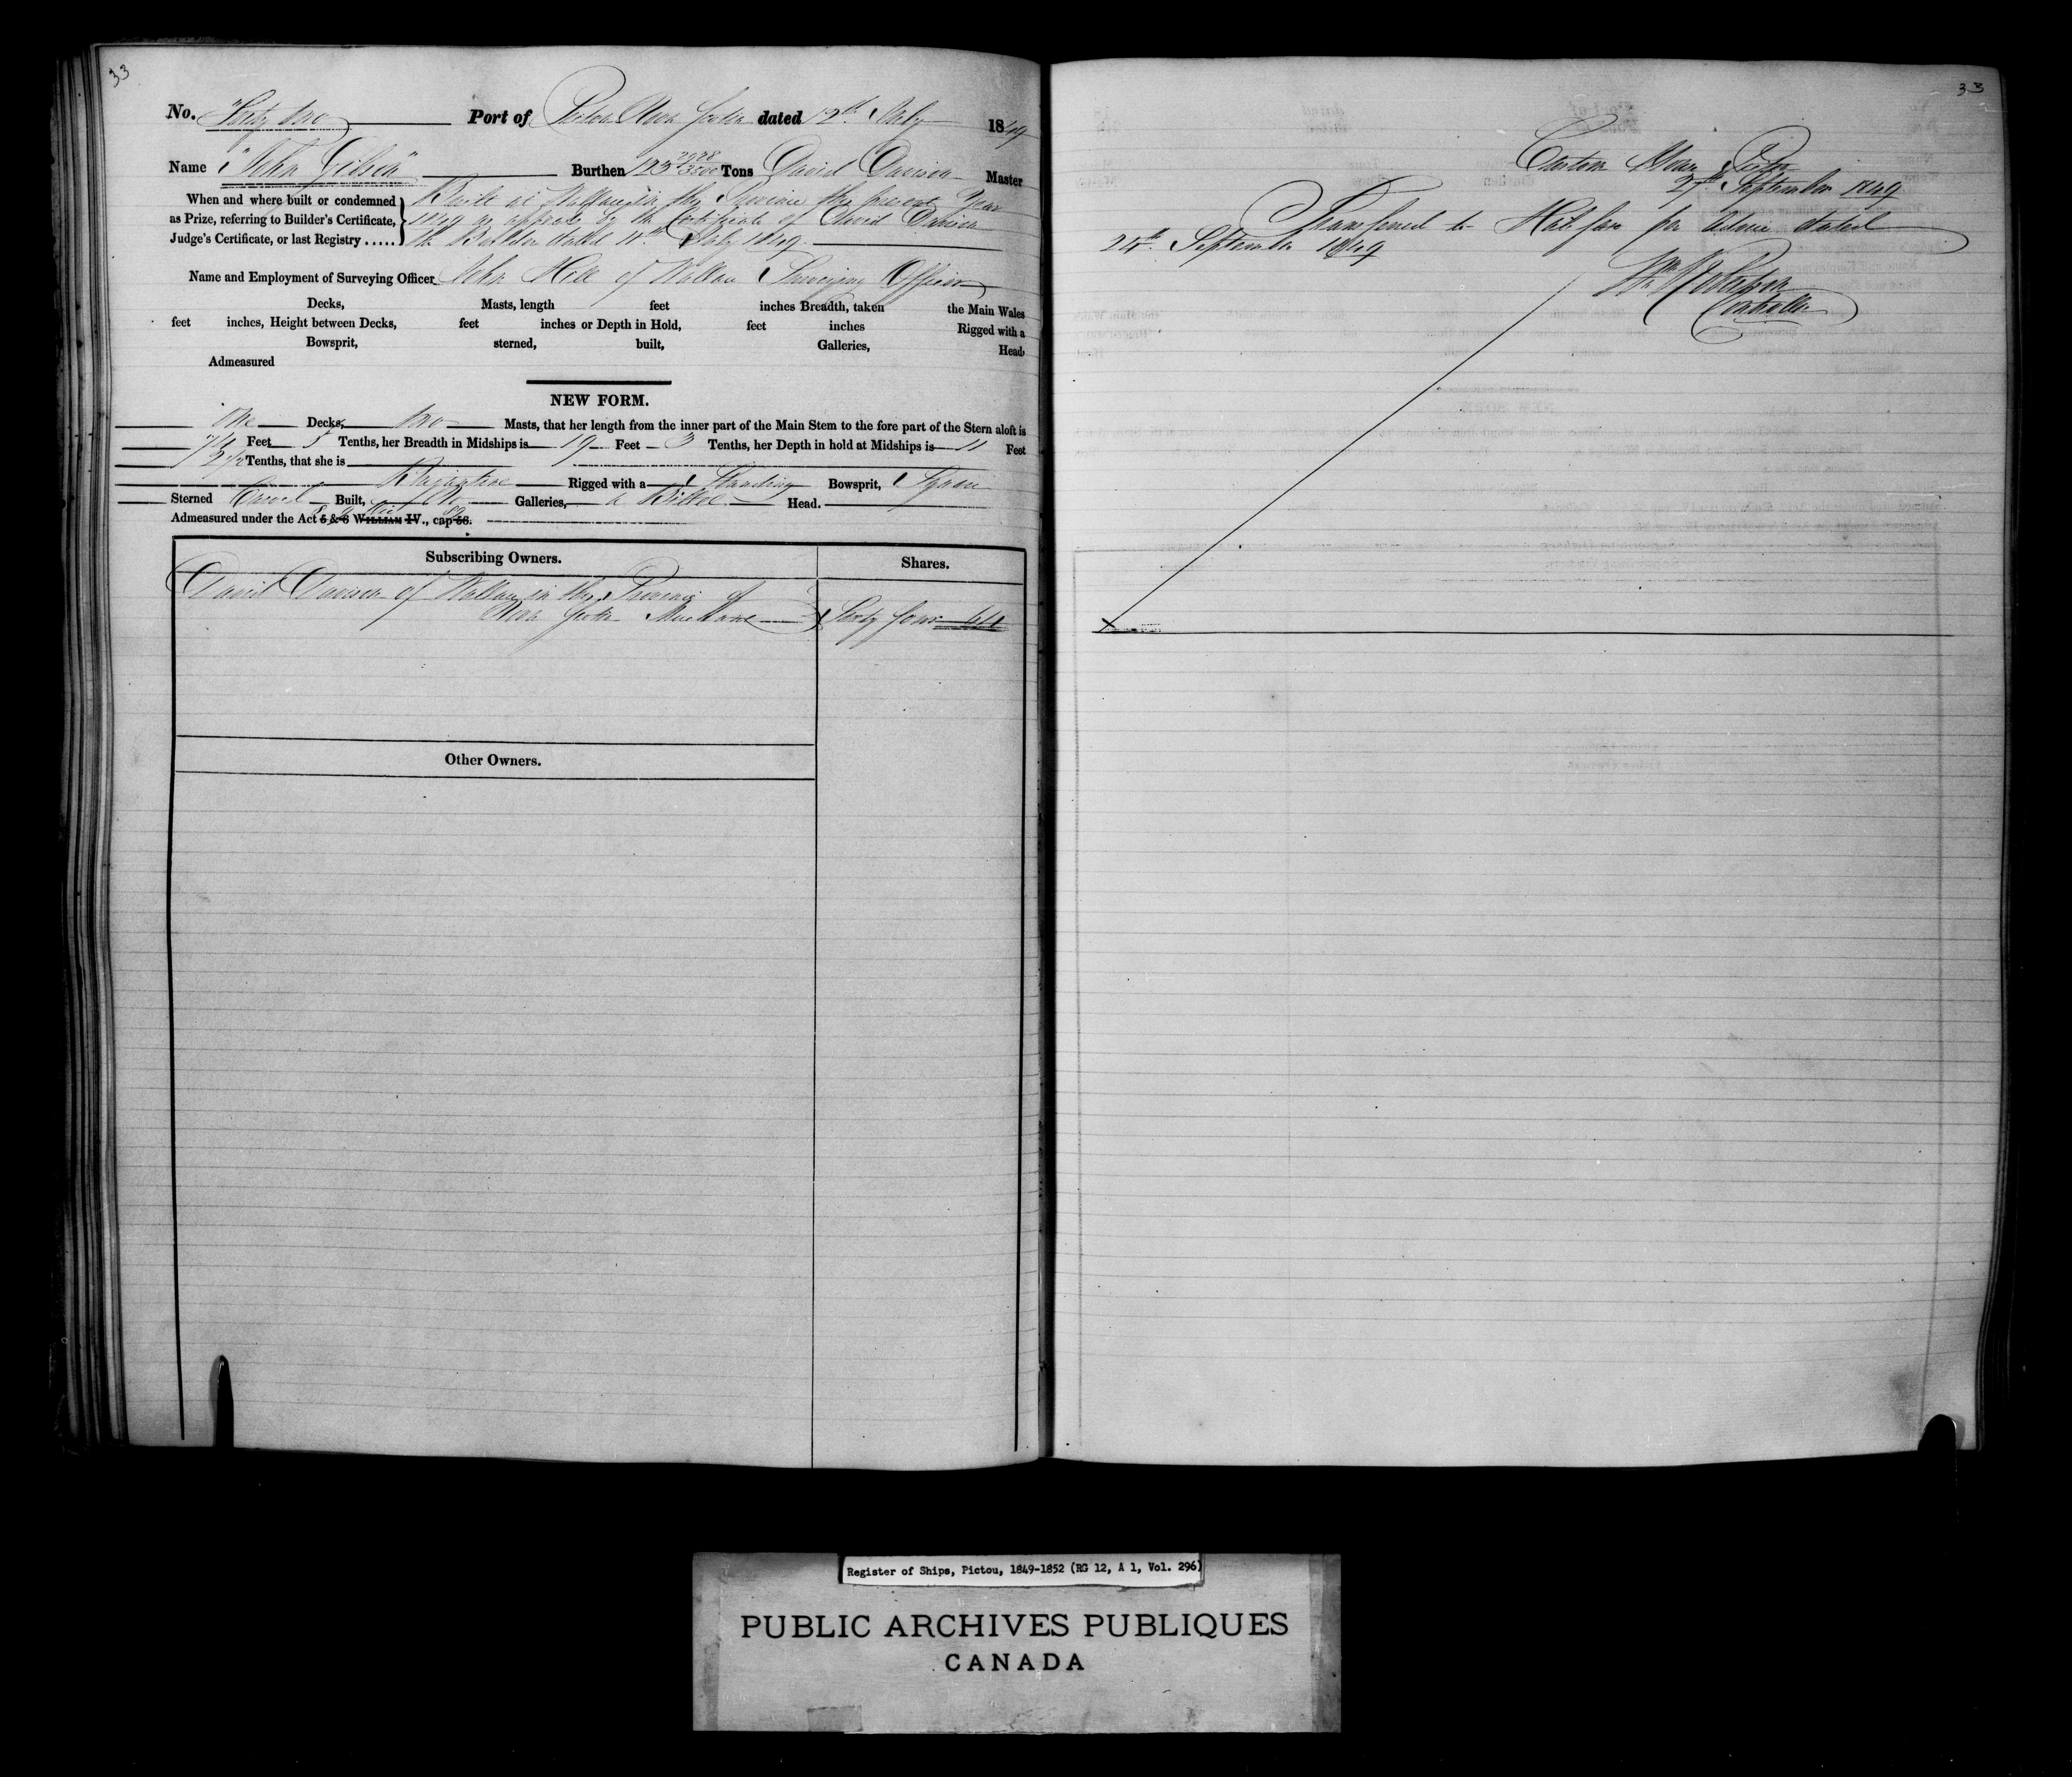 33
No. Forty two Port of Pictou Nova Scotia dated 12th July 1849
Name "John Gibson" Burthen 123 2978/3500 Tons David Davison Master
When and where built or condemned
as Prize, referring to Builder's Certificate,
Judge's Certificate, or last Registry .....
Built at Wallace in this Province this present Year
1849 as appears by the Certificate of David Davison
the Builder dated 11th July 1849.
Name and Employment of Surveying Officer John Hill of Wallace Surveying Officer
Decks, Masts, length feet inches Breadth, taken the Main Wales
feet inches, Height between Decks, feet inches or Depth in Hold, feet inches Rigged with a
Bowsprit, sterned, built, Galleries, Head,
Admeasured
NEW FORM.
One Decks, two Masts, that her length from the inner part of the Main Stem to the fore part of the Stern aloft is
74 Feet 5 Tenths, her Breadth in Midships is 19 Feet 3 Tenths, her Depth in hold at Midships is 11 Feet
2 1/2 Tenths, that she is
Brigantine Rigged with a Standing Bowsprit, Square
Sterned Carvel Built, No Galleries, a Billet Head.
Admeasured under the Act 5 & 6 WILLIAM IV., cap 56.
Subscribing Owners. Shares.
David Davison of Wallace in this Province of
Nova Scotia Merchant Sixty four 64
Other Owners.
33
Custom House Pictou
27th September 1849
Transferred to Halifax per Advice dated
24th September 1849
Controller
Register of Ships, Pictou, 1849-1852 (RG 12, A 1, Vol. 296)
PUBLIC ARCHIVES PUBLIQUES
CANADA